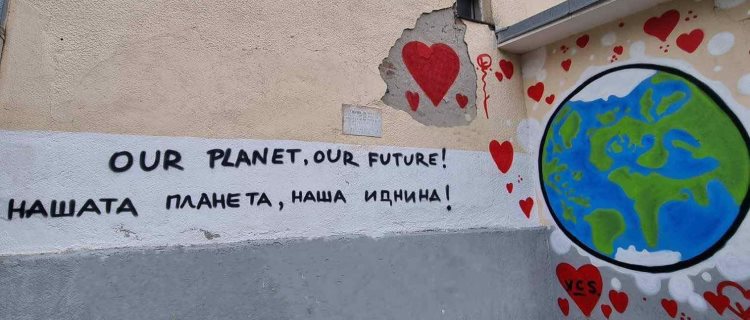 OUR PLANET, OUR FUTURE!
НАШАТА ПЛАНЕТА, НАША ИДНИНА!
V.C.S.